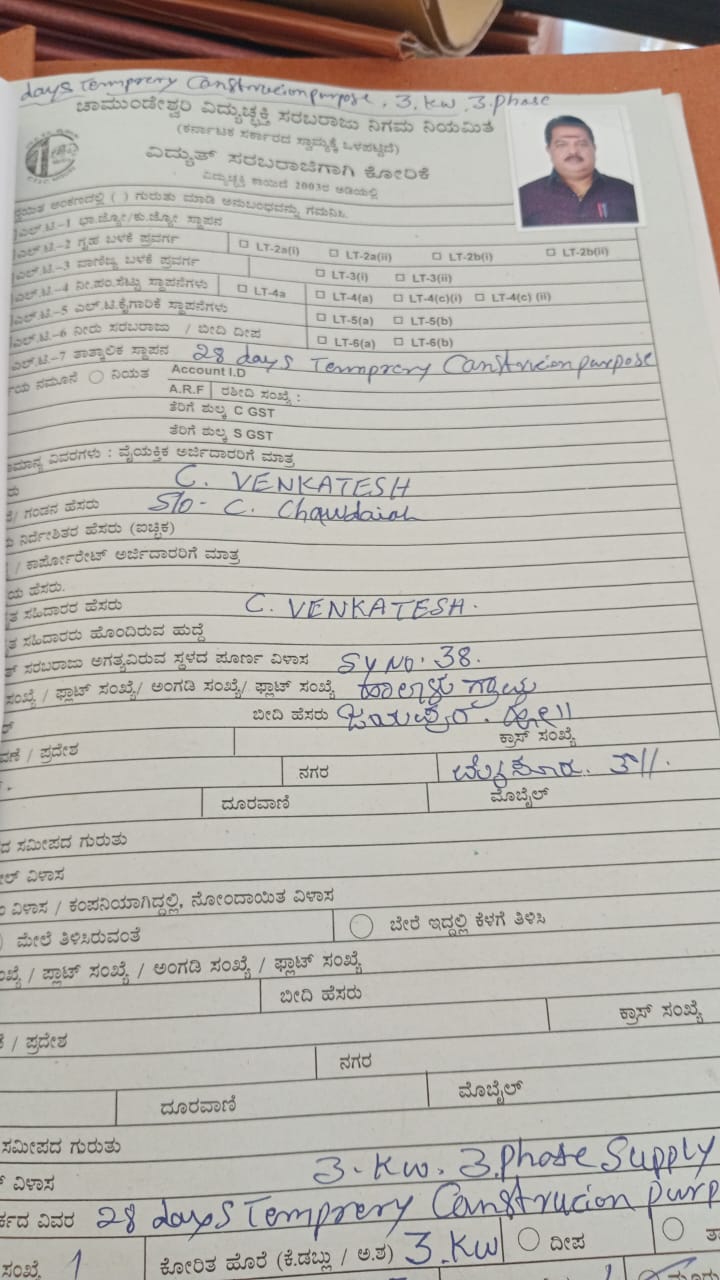 days Temprery Canstrucion purpose. 3. Kw. 3. phase
ಚಾಮುಂಡೇಶ್ವರಿ ವಿದ್ಯುಚ್ಛಕ್ತಿ ಸರಬರಾಜು ನಿಗಮ ನಿಯಮಿತ
(ಕರ್ನಾಟಕ ಸರ್ಕಾರದ ಸ್ವಾಮ್ಯಕ್ಕೆ ಒಳಪಟ್ಟಿದೆ)
ವಿದ್ಯುತ್ ಸರಬರಾಜಿಗಾಗಿ ಕೋರಿಕೆ
ವಿದ್ಯುಚ್ಛಕ್ತಿ ಕಾಯಿದೆ 2003ರ ಅಡಿಯಲ್ಲಿ
ಅಂಕಣದಲ್ಲಿ ( ) ಗುರುತು ಮಾಡಿ ಅನುಬಂಧವನ್ನು ಗಮನಿಸಿ
ಎಲ್.ಟಿ.-1 ಭಾ.ಜ್ಯೋ/ಕು.ಜ್ಯೋ ಸ್ಥಾಪನ
ಎಲ್.ಟಿ.-2 ಗೃಹ ಬಳಕೆ ಪ್ರವರ್ಗ □ LT-2a(i) □ LT-2a(ii) □ LT-2b(i) □ LT-2b(ii)
ಎಲ್.ಟಿ.-3 ವಾಣಿಜ್ಯ ಬಳಕೆ ಪ್ರವರ್ಗ □ LT-3(i) □ LT-3(ii)
ಎಲ್.ಟಿ.-4 ನೀ.ಪಂ.ಸೆಟ್ಟು ಸ್ಥಾಪನೆಗಳು □ LT-4a □ LT-4(a) □ LT-4(c)(i) □ LT-4(c) (ii)
ಎಲ್.ಟಿ.-5 ಎಲ್.ಟಿ.ಕೈಗಾರಿಕೆ ಸ್ಥಾಪನೆಗಳು □ LT-5(a) □ LT-5(b)
ಎಲ್.ಟಿ.-6 ನೀರು ಸರಬರಾಜು / ಬೀದಿ ದೀಪ □ LT-6(a) □ LT-6(b)
ಎಲ್.ಟಿ.-7 ತಾತ್ಕಾಲಿಕ ಸ್ಥಾಪನ 28 days Temprery Canstrucion purpose
ನಮೂನೆ ○ ನಿಯತ Account I.D
A.R.F ರಶೀದಿ ಸಂಖ್ಯೆ :
ತೆರಿಗೆ ಶುಲ್ಕ C GST
ತೆರಿಗೆ ಶುಲ್ಕ S GST
ವಿವರಗಳು : ವೈಯಕ್ತಿಕ ಅರ್ಜಿದಾರರಿಗೆ ಮಾತ್ರ
C. VENKATESH
/ ಗಂಡನ ಹೆಸರು S/o- C. Chowdaiah
ನಿರ್ದೇಶಿತರ ಹೆಸರು (ಐಚ್ಛಿಕ)
/ ಕಾರ್ಪೋರೇಟ್ ಅರ್ಜಿದಾರರಿಗೆ ಮಾತ್ರ
ಯ ಹೆಸರು.
ತ ಸಹಿದಾರರ ಹೆಸರು C. VENKATESH.
ತ ಸಹಿದಾರರು ಹೊಂದಿರುವ ಹುದ್ದೆ
ತ್ ಸರಬರಾಜು ಅಗತ್ಯವಿರುವ ಸ್ಥಳದ ಪೂರ್ಣ ವಿಳಾಸ SY NO. 38.
ಸಂಖ್ಯೆ / ಫ್ಲಾಟ್ ಸಂಖ್ಯೆ/ ಅಂಗಡಿ ಸಂಖ್ಯೆ/ ಫ್ಲಾಟ್ ಸಂಖ್ಯೆ ಗ್ರಾಮ
ಬೀದಿ ಹೆಸರು ಜಯಪುರ. ಹೋ||
ಕ್ರಾಸ್ ಸಂಖ್ಯೆ
/ ಪ್ರದೇಶ
ನಗರ ಮೈಸೂರು. ತಾ||.
ದೂರವಾಣಿ ಮೊಬೈಲ್
ದ ಸಮೀಪದ ಗುರುತು
ವಿಳಾಸ
ವಿಳಾಸ / ಕಂಪನಿಯಾಗಿದ್ದಲ್ಲಿ, ನೋಂದಾಯಿತ ವಿಳಾಸ
ಮೇಲೆ ತಿಳಿಸಿರುವಂತೆ ○ ಬೇರೆ ಇದ್ದಲ್ಲಿ ಕೆಳಗೆ ತಿಳಿಸಿ
/ ಪ್ಲಾಟ್ ಸಂಖ್ಯೆ / ಅಂಗಡಿ ಸಂಖ್ಯೆ / ಫ್ಲಾಟ್ ಸಂಖ್ಯೆ
ಬೀದಿ ಹೆಸರು
ಕ್ರಾಸ್ ಸಂಖ್ಯೆ
/ ಪ್ರದೇಶ
ನಗರ
ದೂರವಾಣಿ ಮೊಬೈಲ್
ಸಮೀಪದ ಗುರುತು
ವಿಳಾಸ 3. Kw. 3. phase Supply
ವಿವರ 28 days Temprery Canstrucion purp
ಸಂಖ್ಯೆ 1 ಕೋರಿತ ಹೊರೆ (ಕಿ.ಡಬ್ಲು / ಅ.ಶ) 3. Kw ○ ದೀಪ ○